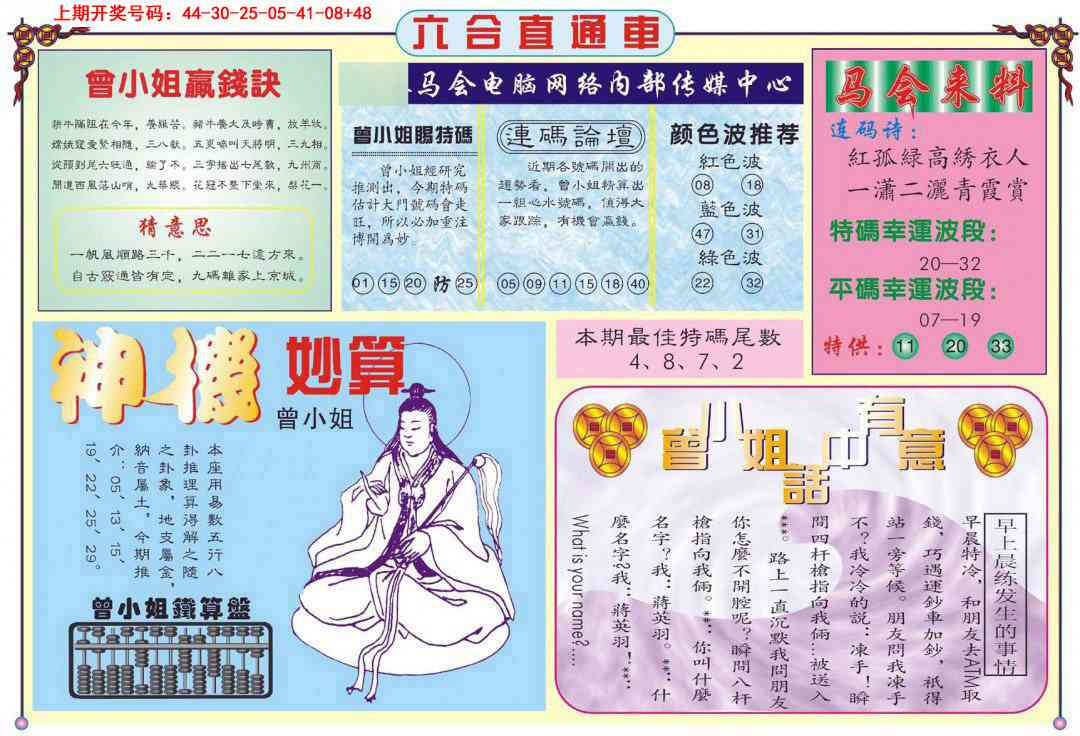 上期开奖号码：44-30-25-05-41-08+48
六合直通車
曾小姐贏錢訣
猜意思
一帆風順路三千，二二一七遠方來。
自古窮通皆有定，九碼離家上京城。
马会电脑网络内部传媒中心
曾小姐賜特碼
曾小姐經研究
推測出，今期特碼
估計大門號碼會走
旺，所以必加重注
博開爲妙。
01 15 20 防 25
連碼論壇
近期各號碼開出的
趨勢看，曾小姐精算出
一組心水號碼，值得大
家跟踪，有機會贏錢。
05 09 11 15 18 40
颜色波推荐
紅色波
08 18
藍色波
47 31
綠色波
22 32
马会来料
连码诗：
紅孤緑高綉衣人
一瀟二灑青霞賞
特碼幸運波段：
20—32
平碼幸運波段：
07—19
特供：11 20 33
本期最佳特碼尾數
4、8、7、2
神機妙算
曾小姐
本座用易數五行八
卦推理算得解之隨
之卦象，地支屬金，
納音屬土，今期推
介：05、13、15、
19、22、25、29。
曾小姐鐵算盤
曾小姐話中有意
早上晨练发生的事情
早晨特冷，和朋友去ATM取
錢，巧遇運鈔車加鈔，祇得
站一旁等候。朋友問我凍手
不？我冷冷的説：凍手！瞬
間四杆槍指向我倆…被送入
***。
路上一直沉默我問朋友
你怎麼不開腔呢？瞬間八杆
槍指向我倆。**：你叫什麼
名字？我：蔣英羽。**：什
麼名字?我：蔣英羽！**：
What is your name?....